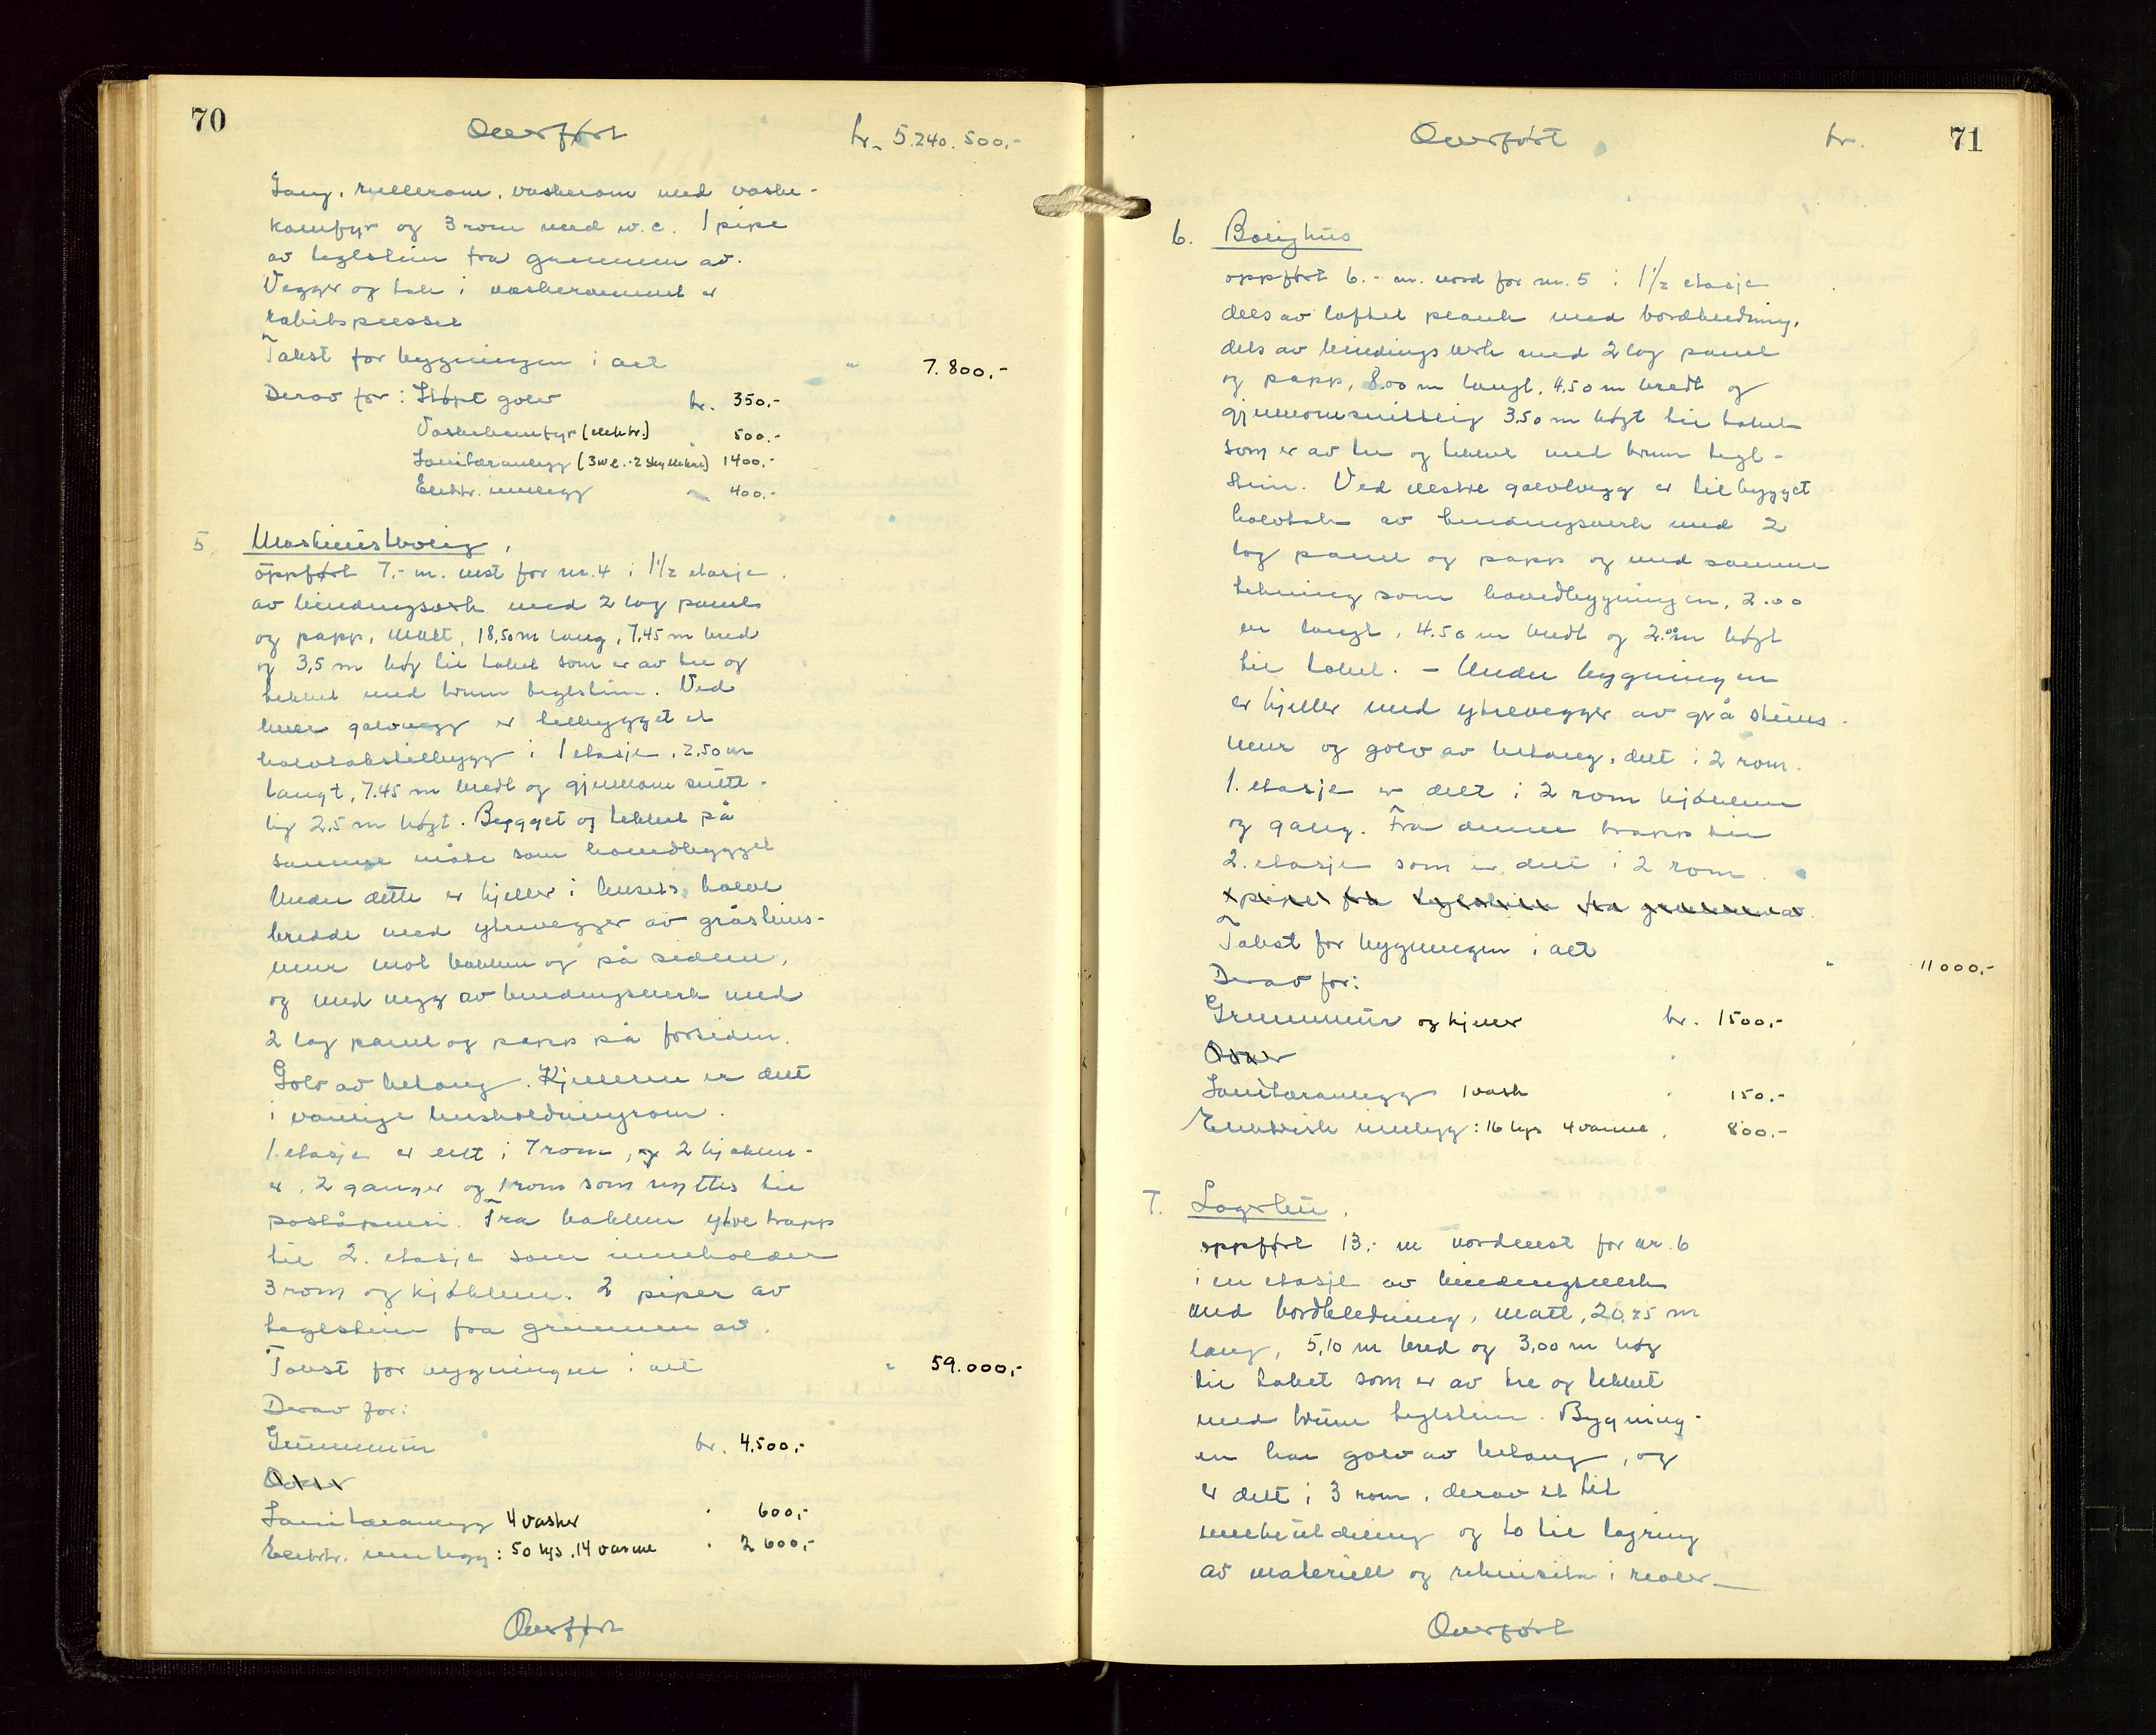 70
Overført kr. 5.240.500,-
Gang, rullerom, vaskerom med vaske-
komfyr og 3 rom med w.c. 1 pipe
av teglstein fra grunnen av.
Vegger og tak i vaskerommet er
rabitspusset
Takst for bygningen i alt " 7.800,-
Derav for: Støpt golv kr. 350.-
Vaskekomfyr (elektr.) " 500.-
Sanitæranlegg (3 wc. - 2 skyllekar) 1400.-
Elektr. innlegg " 400.-
5. Maskinistbolig.
oppført 7,- m. vest for nr. 4 i 1 1/2 etasje.
av bindingsverk med 2 lag panel
og papp, målt, 18,50 m lang, 7,45 m bred
og 3,5 m høg til taket som er av tre og
tekket med brun teglstein. Ved
gavlvegg er tilbygget et
halvtakstilbygg i 1 etasje, 2.50 m
langt, 7.45 m bredt og gjennomsnitt-
lig 2.5 m høgt. Bygget og tekket på
samme måte som hovedbygget
Under dette er kjeller i husets halve
bredde med yttervegger av gråsteins-
mur mot bakken og på sidene,
og med vegg av bindingsverk med
2 lag panel og papp på forsiden.
Golv av betong. Kjelleren er delt
i vanlige husholdningsrom.
1. etasje er delt i 7 rom, og 2 kjøkken-
er, 2 ganger og 1 rom som nyttes til
poståpneri. Fra bakken ytre trapp
til 2. etasje som inneholder
3 rom og kjøkken. 2 piper av
teglstein fra grunnen av.
Takst for bygningen i alt " 59.000,-
Derav for:
Grunnmur kr. 4.500,-
Ovner
Sanitæranlegg 4 vasker " 600,-
Elektr. innlegg: 50 lys. 14 varme " 2 600,-
Overført
71
Overført kr.
6. Bolighus
oppført 6.- m. nord for nr. 5 i 1 1/2 etasje
dels av laftet plank med bordkledning,
dels av bindingsverk med 2 lag panel
og papp, 8.00 m langt, 4.50 m bredt og
gjennomsnittlig 3.50 m høgt til taket
som er av tre og tekket med brun tegl-
stein. Ved vestre gavlvegg er tilbygget
halvtak av bindingsverk med 2
lag panel og papp og med samme
tekning som hovedbygningen, 2.00
m langt, 4.50 m bredt og 2.00 m høgt
til taket. - Under bygningen
er kjeller med yttervegger av grå steins-
mur og golv av betong, delt i 2 rom.
1. etasje er delt i 2 rom kjøkken
og gang. Fra denne trapp til
2. etasje som er delt i 2 rom.
1 pipe fra teglstein fra grunnen av.
Takst for bygningen i alt " 11000.-
Derav for:
Grunnmur og kjeller kr. 1500,-
Ovner "
Sanitæranlegg 1 vask " 150.-
Elektrisk innlegg: 16 lys 4 varme " 800.-
7. Lagerhus.
oppført 13,- m nordvest for nr. 6
i en etasje av bindingsverk
med bordkledning, målt, 20,25 m
lang, 5,10 m bred og 3,00 m høg
til taket som er av tre og tekket
med brun teglstein. Bygning-
en har golv av betong, og
er delt i 3 rom, derav et til
og to til lagring
av materiell og rekvisita i reoler
Overført